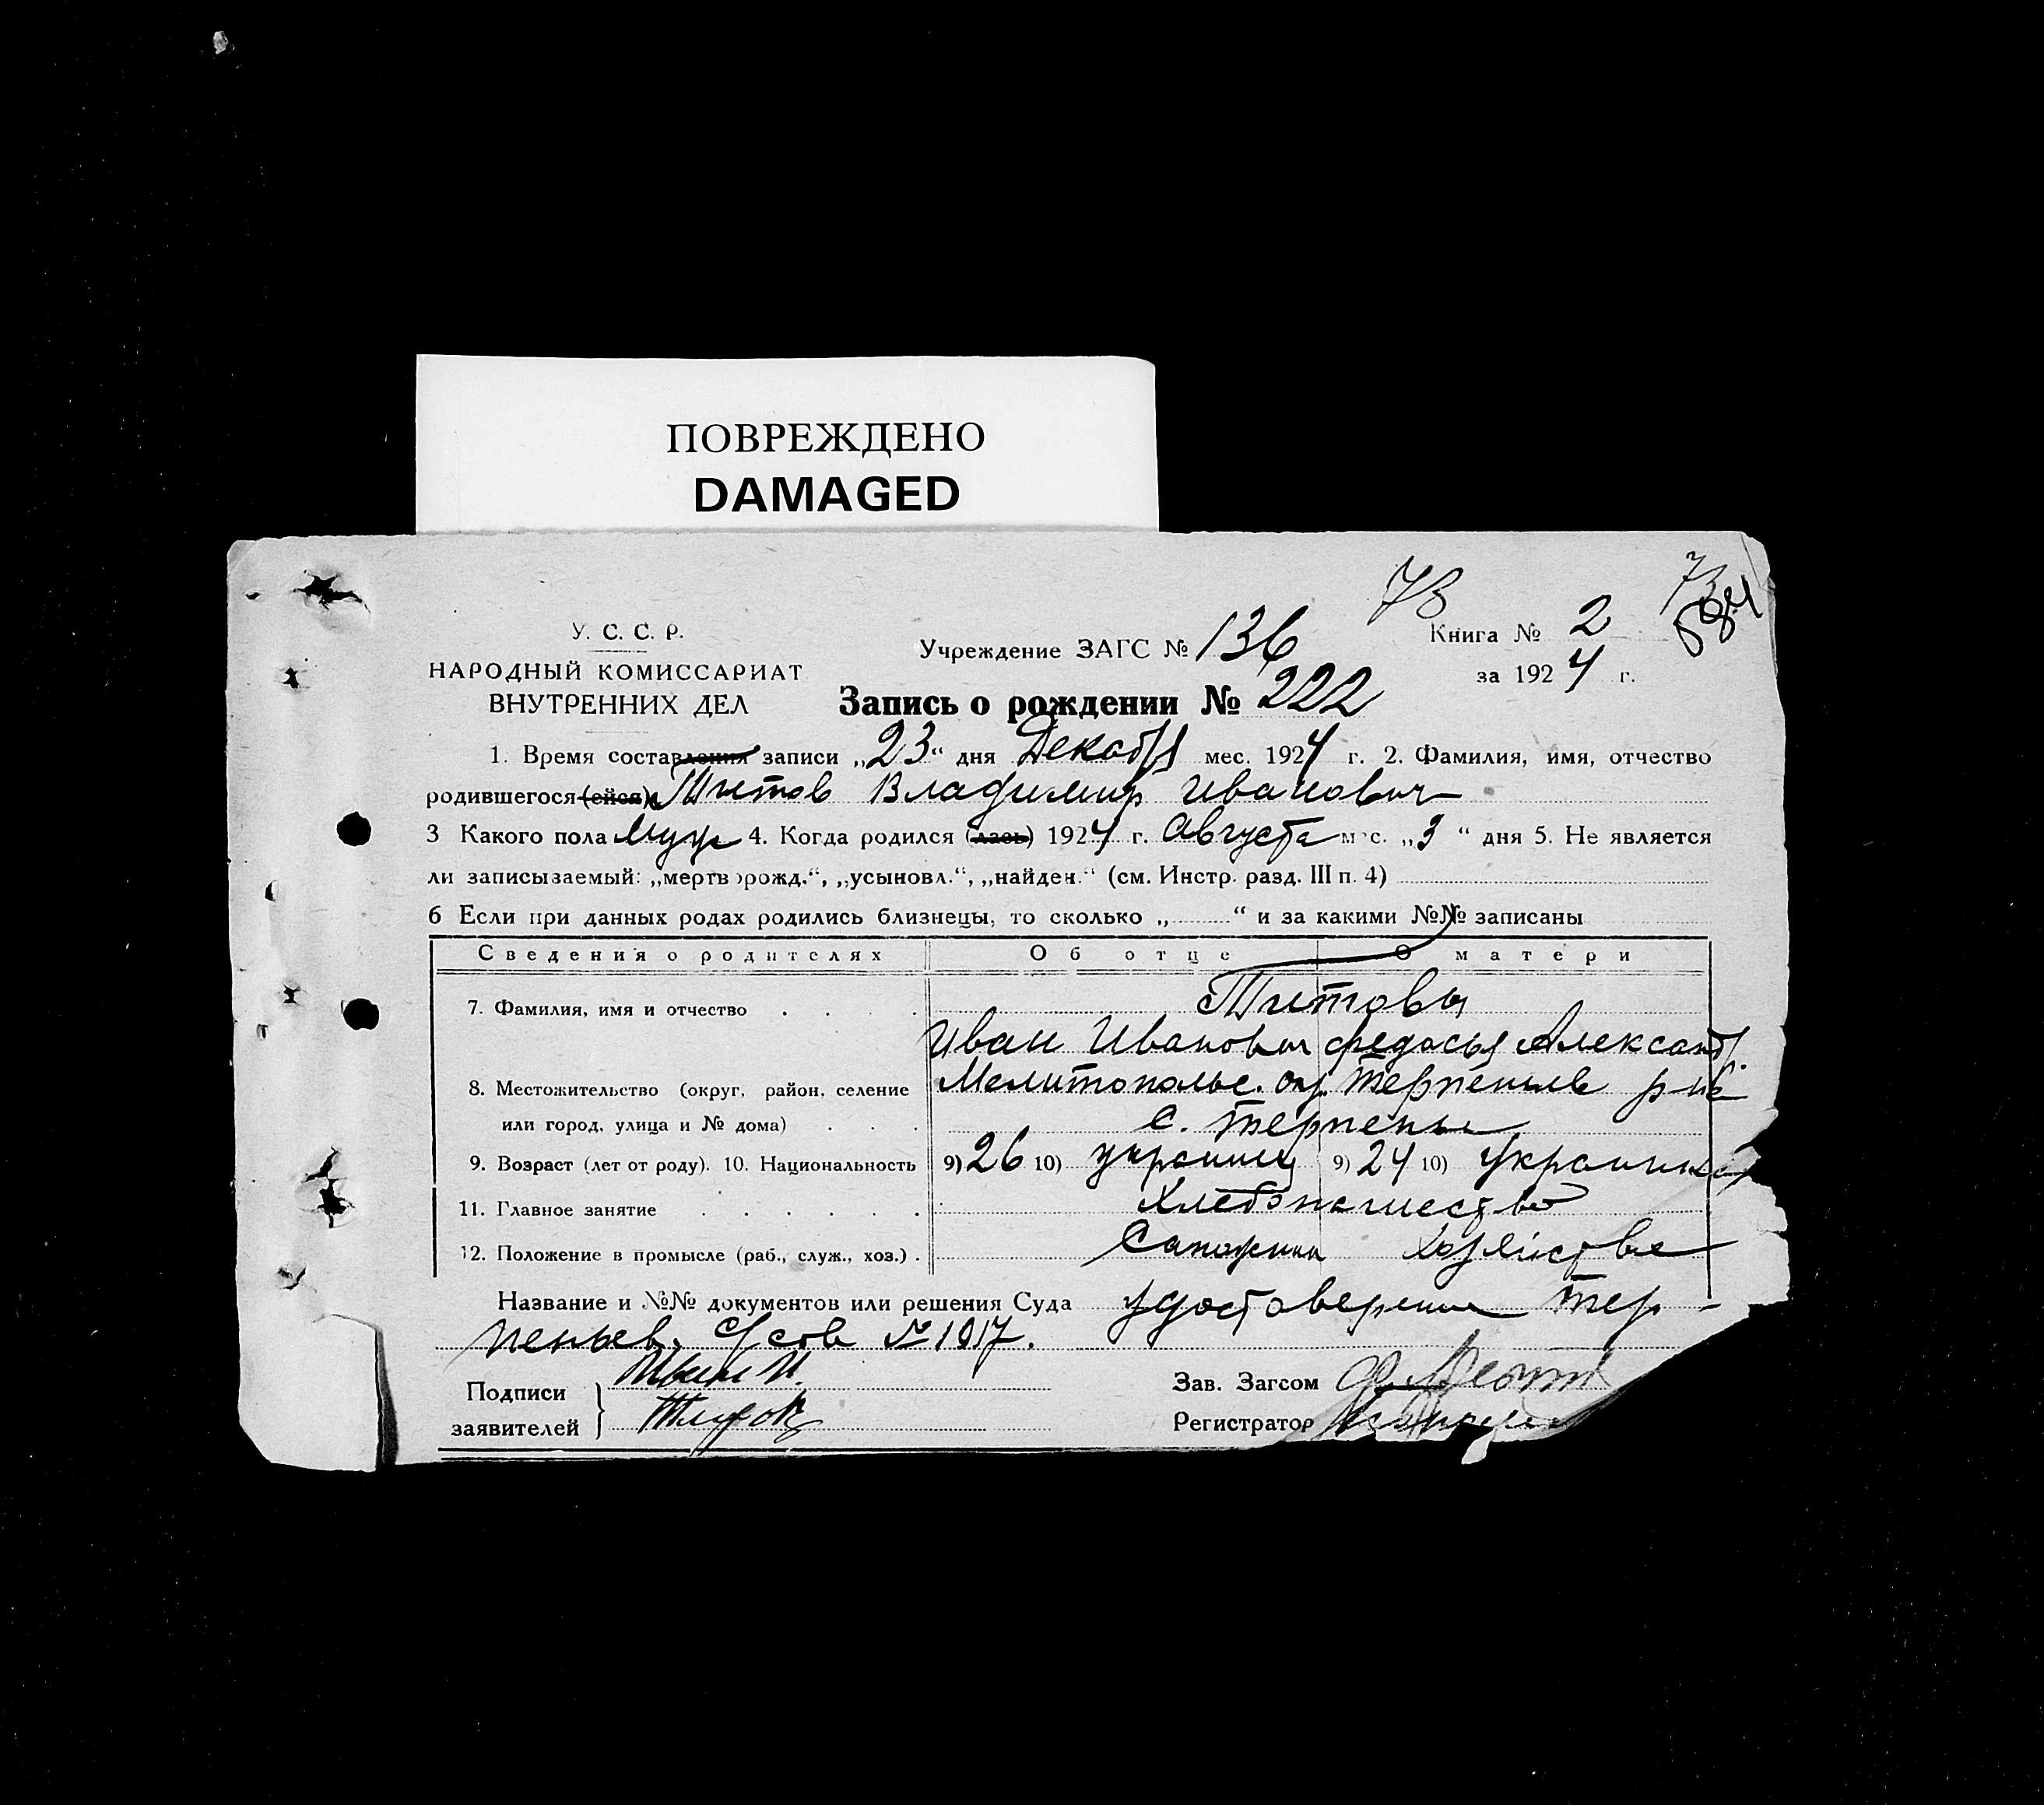 ПОВРЕЖДЕНО
DAMAGED
78
73
584
У. С. С. Р.
НАРОДНЫЙ КОМИССАРИАТ
ВНУТРЕННИХ ДЕЛ
Учреждение ЗАГС № 136
Книга № 2
за 1924 г.
Запись о рождении № 222
1. Время составления записи „23“ дня Декабря мес. 1924 г. 2. Фамилия, имя, отчество
родившегося (ейся) Титов Владимир Иванович
3 Какого пола муж 4. Когда родился (лась) 1924 г. Августа мес. „3“ дня 5. Не является
ли записываемый: „мертворожд.“, „усыновл.“, „найден.“ (см. Инстр. разд. III п. 4)
6 Если при данных родах родились близнецы, то сколько „ “ и за какими №№ записаны
Сведения о родителях Об отце О матери
7. Фамилия, имя и отчество Титовы
Иван Иванович Федосья Александр.
8. Местожительство (округ, район, селение Мелитопольс. окр. Терпеньев р-на
или город, улица и № дома) с. Терпенье
9. Возраст (лет от роду). 10. Национальность 9) 26 10) украинец 9) 24 10) украинка
11. Главное занятие Хлебопашество
12. Положение в промысле (раб., служ., хоз.) Хозяйстве
Название и №№ документов или решения Суда удостоверение Тер-
пеньев. с/сов № 1917.
Подписи
заявителей
Иван И.
Титов
Зав. Загсом
Регистратор